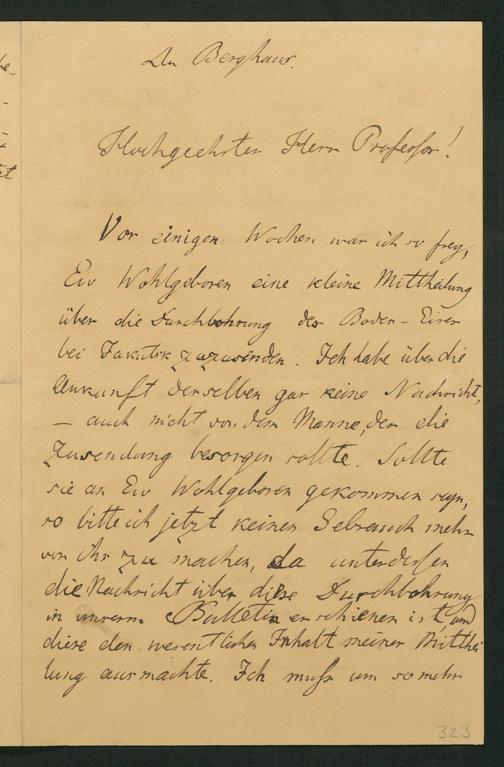 An Berghaus.
Hochgeehrter Herr Professor!
Vor einigen Wochen war ich so frey,
Ew Wohlgeboren eine kleine Mittheilung
über die Durchbohrung des Boden-Eises
bei Jakutsk zuzusenden. Ich habe über die
Ankunft derselben gar keine Nachricht,
– auch nicht von dem Manne, der die
Zusendung besorgen sollte. Sollte
sie an Ew Wohlgeboren gekommen seyn,
so bitte ich jetzt keinen Gebrauch mehr
von ihr zu machen, da unterdessen
die Nachricht über diese Durchbohrung
in unserm Bulletin erschienen ist, und
diese den wesentlichen Inhalt meiner Mitthei
lung ausmachte. Ich muß um so mehr
323